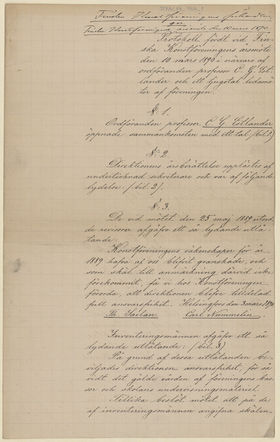 Finska Konstföreningens
Protokoll fördt vid Fin-
ska Konstföreningens årsmöte
den 10 mars 1890 i närvaro af
ordföranden professor C. G. Est-
lander och ett tjugotal ledamö-
ter af föreningen.
§ 1.
Ordföranden professor C. G. Estlander
öppnade sammankomsten med ett tal, (bil. 1)
§ 2.
Direktionens årsberättelse upplästes af
undertecknad sekreterare och var af följande
lydelse. (bil. 2).
§ 3.
De vid mötet den 25 maj 1889 utsed-
da revisorer afgåfvo ett så lydande utlå-
tande.
Konstföreningens räkenskaper för år
1889 hafva af oss blifvit granskade, och
som skäl till anmärkning dervid icke
förekommit, få vi hos Konstföreningen
förorda, att direktionen beviljas
full ansvarsfrihet. Helsingfors den 3 mars 1890
Carl Nummelin.
Inventeringsmännen afgåfvo ett så
lydande utlåtande: (bil. 3)
På grund af dessa utlåtanden be-
viljades direktionen ansvarsfrihet, för så
vidt det gälde vården af föreningens kas-
sor och skolans undervisningsmateriel.
Tillika beslöt mötet att på de
af inventeringsmännen angifna skälen